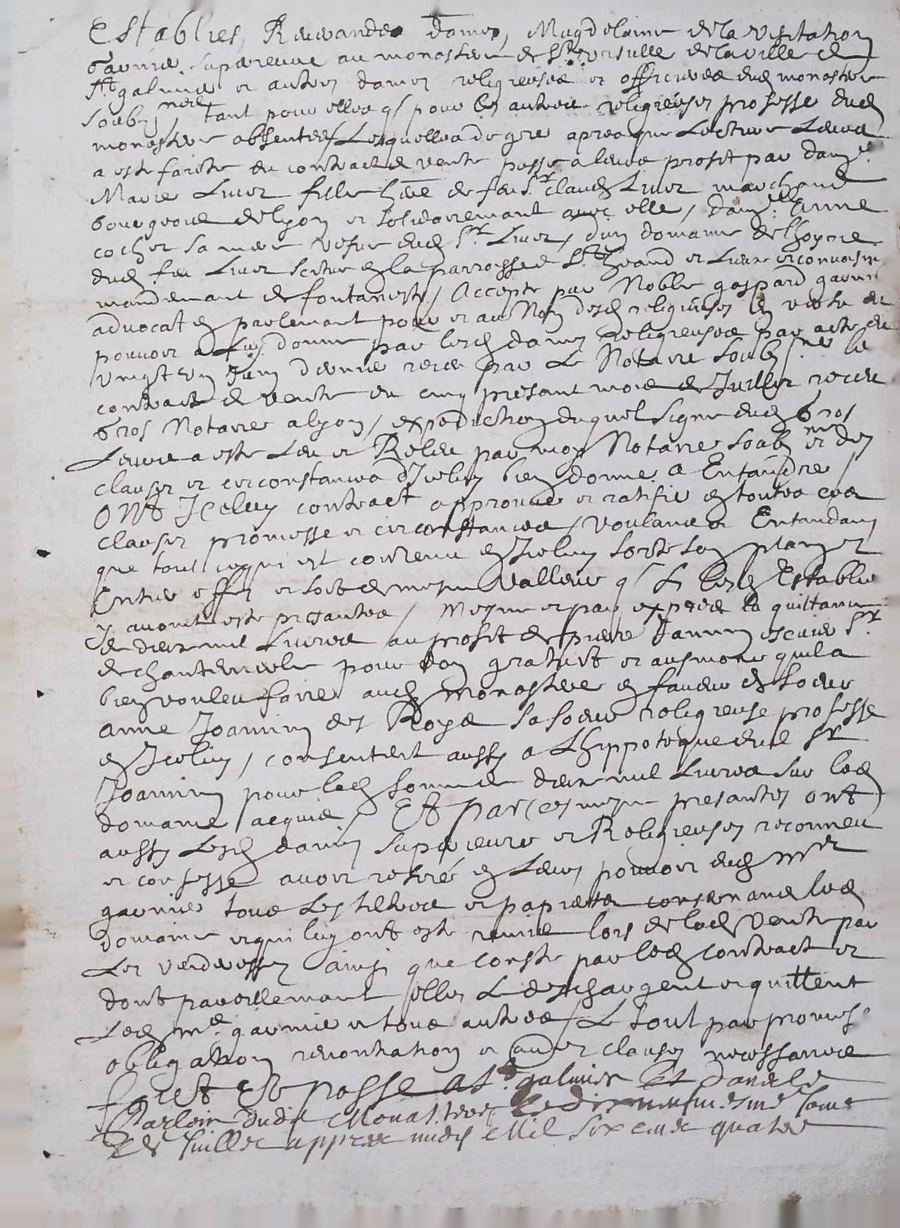 Establies, Reverandes dames, Magdelaine de la Visitation
garnier superieure au monastere de Ste Ursulle de la ville de
St galmier et autres dames religieuses et officieres dud monastere
soubznées tant pour elles q pour les autres religieuses professe dud
monastere absentes / Lesquelles de gre apres que Lecture Leurs
a este faicte du contract de vente passé a leurs profit par damlle
Marie Livet fille de feu Sr Claude Livet marchand
bourgeois de Lyon et solidairement avec elle / damlle Anne
cocher sa mere vefve dud Sr Livet / d'un domaine de
dud feu Livet scitue en la parroisse et Lieux circonvoisins
mandemant de fontanes / Accepte par Noble gaspard garnier
advocat en parlemant pour et au Nom desd religieuses en vertu du
pouvoir a Luy donne par lesd dames Religieuses par acte du
vingt un Juin dernier receu par Le Notaire soubzne Le
contract de vente du cinq present mois de Juillet receu
Gros Notaire a Lyon / expedition duquel signe dud Gros
Leurs a este Leu et Releu par moy Notaire soubzne et des
clauses et circonstances d'Iceluy bien donne a Entandre /
Ont Iceluy contract approuve et ratifie en toutes ces
clauses promesse et circonstances / voulans et Entandans
que tout ce qui est contenu en Iceluy sorte son plain et
Entier effet et soit de mesme valleur q si Lesd Establies
y avoient este presantes / Mesme et par expres la quittance
de dix mil Livres au profit de pierre Jannin escuier Sr
de chantemerle pour don gratuit et ausmone quil a
bien vouleu faire aud monastere en faveur de soeur
anne Joannin des Roys sa soeur religieuse professe
en Iceluy / consentent aussy a L'hippoteque dud Sr
Joannin pour lad somme de dix mil Livres sur led
domaine acquis / Et par ces mesme presantes ont
aussy Lesd dames superieure et Religieuses reconneu
et confesse avoir retiré en Leurs pouvoir dud mre
garnier tous Les tiltres et papiers consernans led
domaine et qui luy ont este remis lors de lad vente par
Les venderesses ainsi que conste par led contract et
dont pareillemant elles L'deschargent et quittent
Led mre garnier et tous autres / Le tout par promes
obligation renontiation et autres clauses necessaires
faict et passe a St galmier et dans le
Parloir dudit Monastere, Le dixneufviesme Jour
de Juillet appres midy Mil six cent quatre